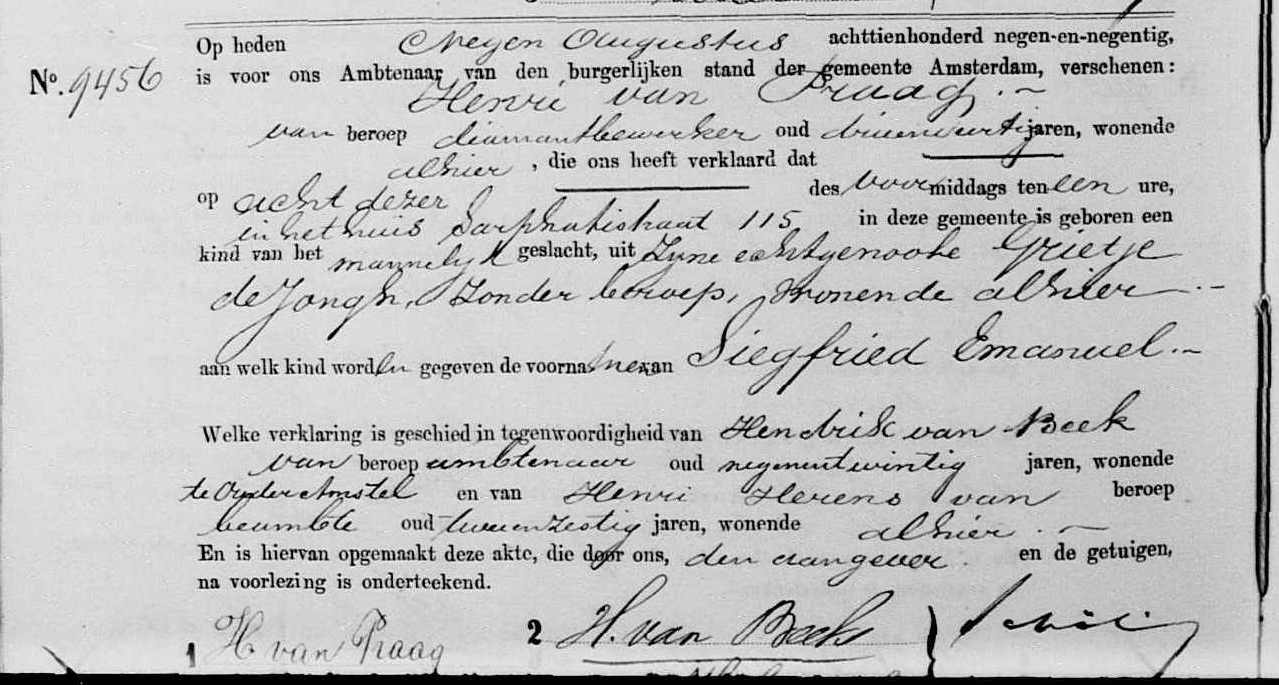 Op heden Negen Augustus achttienhonderd negen-en-negentig,
No. 9456 is voor ons Ambtenaar van den burgerlijken stand der gemeente Amsterdam, verschenen:
Henri van Praag,
van beroep diamantbewerker oud drieenveertig jaren, wonende
alhier, die ons heeft verklaard dat
op acht dezer des voormiddags ten een ure,
in het huis Sarphatistraat 115 in deze gemeente is geboren een
kind van het mannelijk geslacht, uit zijne echtgenoote Grietje
de Jongh, zonder beroep, wonende alhier
aan welk kind worden gegeven de voornamen van Siegfried Emanuel.
Welke verklaring is geschied in tegenwoordigheid van Hendrik van Beek
van beroep ambtenaar oud negenentwintig jaren, wonende
te Ouder Amstel en van Henri Herens van beroep
beambte oud tweeenzestig jaren, wonende alhier.
En is hiervan opgemaakt deze akte, die door ons, den aangever en de getuigen,
na voorlezing is onderteekend.
1 H van Praag 2 H. van Beek